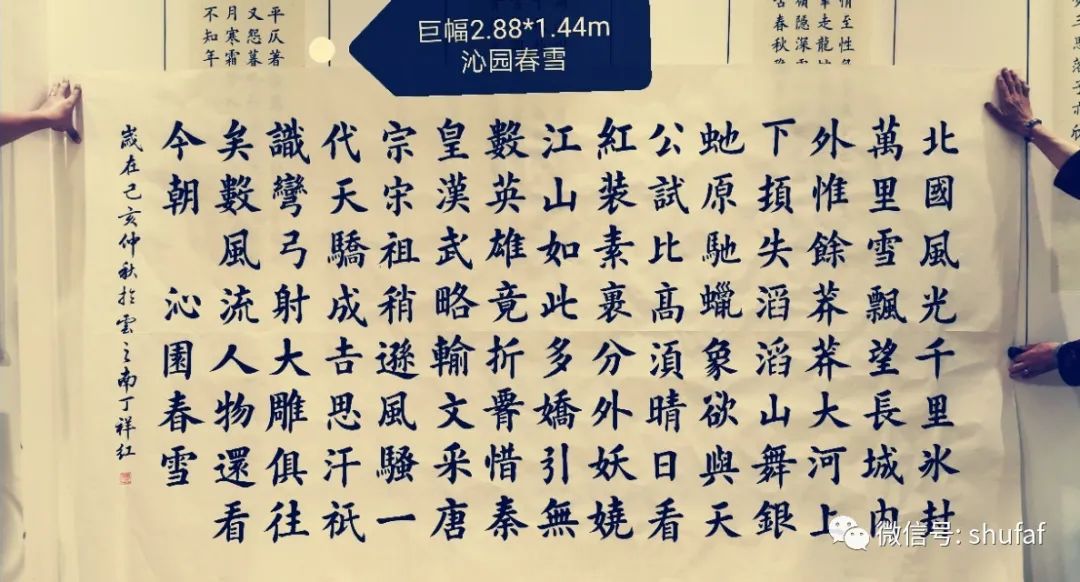 巨幅2.88*1.44m
沁园春雪
北國風光千里氷封
萬里雪飄望長城内
外惟餘莽莽大河上
下頓失滔滔山舞銀
虵原馳蠟象欲與天
公試比高須晴日看
紅装素裹分外妖嬈
江山如此多嬌引無
數英雄竟折惜秦
皇漢武略輸文采唐
宗宋祖稍遜風騷一
代天驕成吉思汗祇
識彎弓射大雕俱往
矣數風流人物還看
今朝 沁園春雪
歲在己亥仲秋於雲之南丁祥红
平仄著
又怨暮
月寒霜
不知年
微信号: shufaf